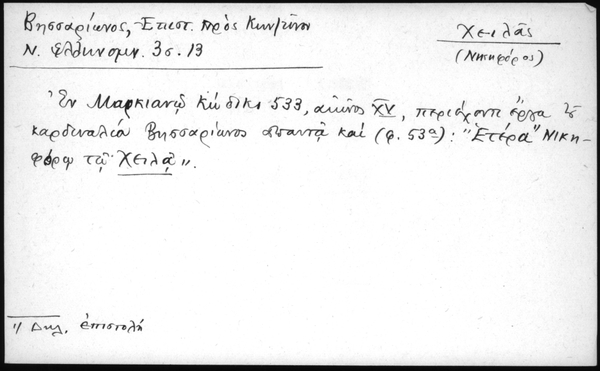 Βησσαρίωνος, Ἐπιστ. πρὸς Κων/τῖνον
Ν. Ἑλληνομν. 3σ. 13
Χειλᾶς
(Νικηφόρος)
Ἐν Μαρκιανῷ Κώδικι 533, αἰῶνος XV, περιέχοντι ἔργα τοῦ
καρδιναλίου Βησσαρίωνος ἀπαντᾷ καὶ (φ. 53α): "Ἑτέρα" Νικη-
φόρῳ τῷ Χειλᾷ".
1/ Δηλ. ἐπιστολή